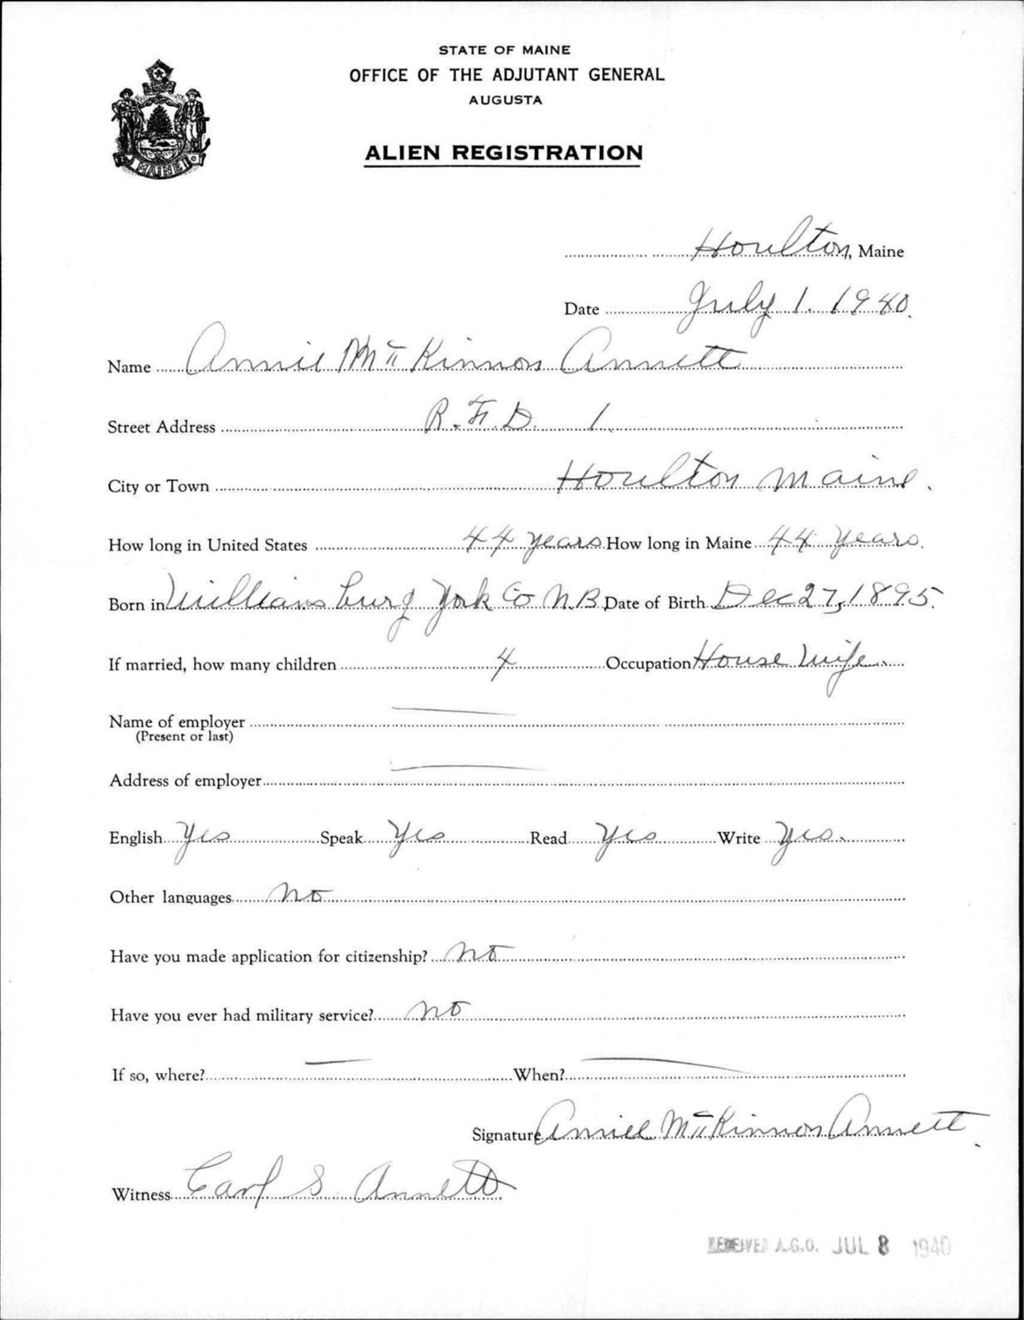 STATE OF MAINE
OFFICE OF THE ADJUTANT GENERAL
AUGUSTA
ALIEN REGISTRATION
MAINE
Houlton, Maine
Date July 1, 1940.
Name Annie McKinnon Annett
Street Address R.F.D. 1.
City or Town Houlton Maine.
How long in United States 44 years How long in Maine 44 years.
Born in Williamsburg York Co N.B. Date of Birth Dec 27, 1895.
If married, how many children 4 Occupation House Wife.
Name of employer
(Present or last)
Address of employer
English Yes Speak Yes Read Yes Write Yes.
Other languages No
Have you made application for citizenship? No
Have you ever had military service? No
If so, where? When?
Signature Annie McKinnon Annett.
Witness Carl S. Annett
RECEIVED A.G.O. JUL 8 1940